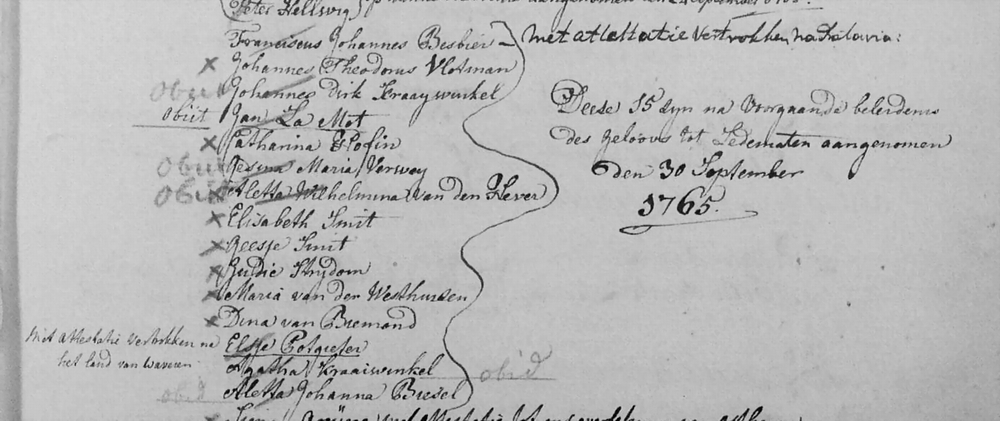 Peter Hellwig
aangenomen den September
Franciscus Johannes Besbier met attestatie vertrokken, na Batavia:
x Johannes Theodorus Vlotman
Obiit Johannes Dirk Kraaywinkel
Obiit Jan La Mot
x Catharina
Obiit Gesina Maria Verwey
Obiit x Aletta Wilhelmina van den Hever
x Elisabeth Smit
x Geesje Smit
x Strydom
x Maria van der Westhuisen
x Dina van Bremond
Met attestatie vertrokken na
het land van waveren
Elsje Potgieter
Agatha Kraaiwinkel obiit
obiit Aletta Johanna Bresel
Deese 15 syn na Voorgaande beleidenis
des geloovs tot Ledematen aangenomen
den 30 September
1765.
met attestatie tot